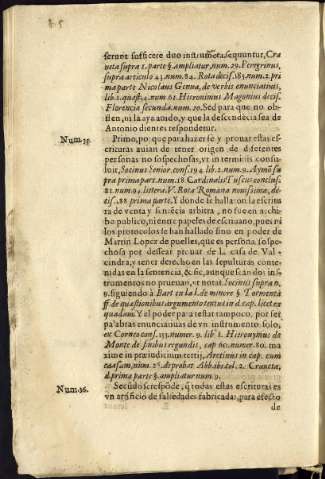 ferunt sufficere duo instrumẽta, sequuntur, Cra
ueta supra 1. parte §. ampliatur, num. 29. Peregrinus,
supra articulo 43. num. 84. Rota decis. 285. num. 2. pri
ma parte Nicolaus Genua, de verbis enunciatiuis,
lib. 1. quæst. 4. num 61. Hieronimus Magonius decis.
Florencia secunda, num. 20. Sed para que no ob-
sten, ni la ayuando, y que la descendẽcia sea de
Antonio dientes responderur.
Num. 35.
Primo, porque para hazer fe y prouar estas es-
crituras auian de tener origen de diferentes
personas no sospechosas, vt in terminis consu-
luit, Socinus Senior conf. 194 lib. 2. num. 9. Aymõ su
pra prima part. num. 18 Cardinalis Tuscus conclus.
82. num. 9. littera V. Rota Romana nouissima, de-
cis. 88 prima parte. Y donde se hallaron la escritura
de venta y sentẽcia arbitra, no fue en archi-
bo publico, ni entre papeles de escriuano, pues ni
los protocolos se han hallado sino en poder de
Martin Lopez de puelles, que es persona sospe-
chosa por dessear prouar de la casa de Val-
cindra, y tener dero. ho en las sepulturas conte-
nidas en la sentencia, & sic, aunque seandos ins-
trumentos no prueuan, vt notat Socinus supra n.
9. siguiendo à Bart in la l. de minore §. Tormenta
ff de quæstionibus argumento textus in d. cap. licet ex
quadam. Y el poder para testar tampoco, por ser
palabras enunciatiuas de vn instrumento solo,
ex Corneo conf. 153. numer. 9. lib. 1. Hieronymus de
Monte de finibus regundis, cap 60. numer. 80. ma
xime in præiudicium tertij, Aretinus in cap. cum
causam, num. 25. de probat. Abb ibi col. 2. Craueta,
d. prima parte §. ampliatur num. 9.
Num. 36.
Secũdo se respõde, q̃ todas estas escrituras es
vn artificio de falsedades fabricadas, para efecto
de